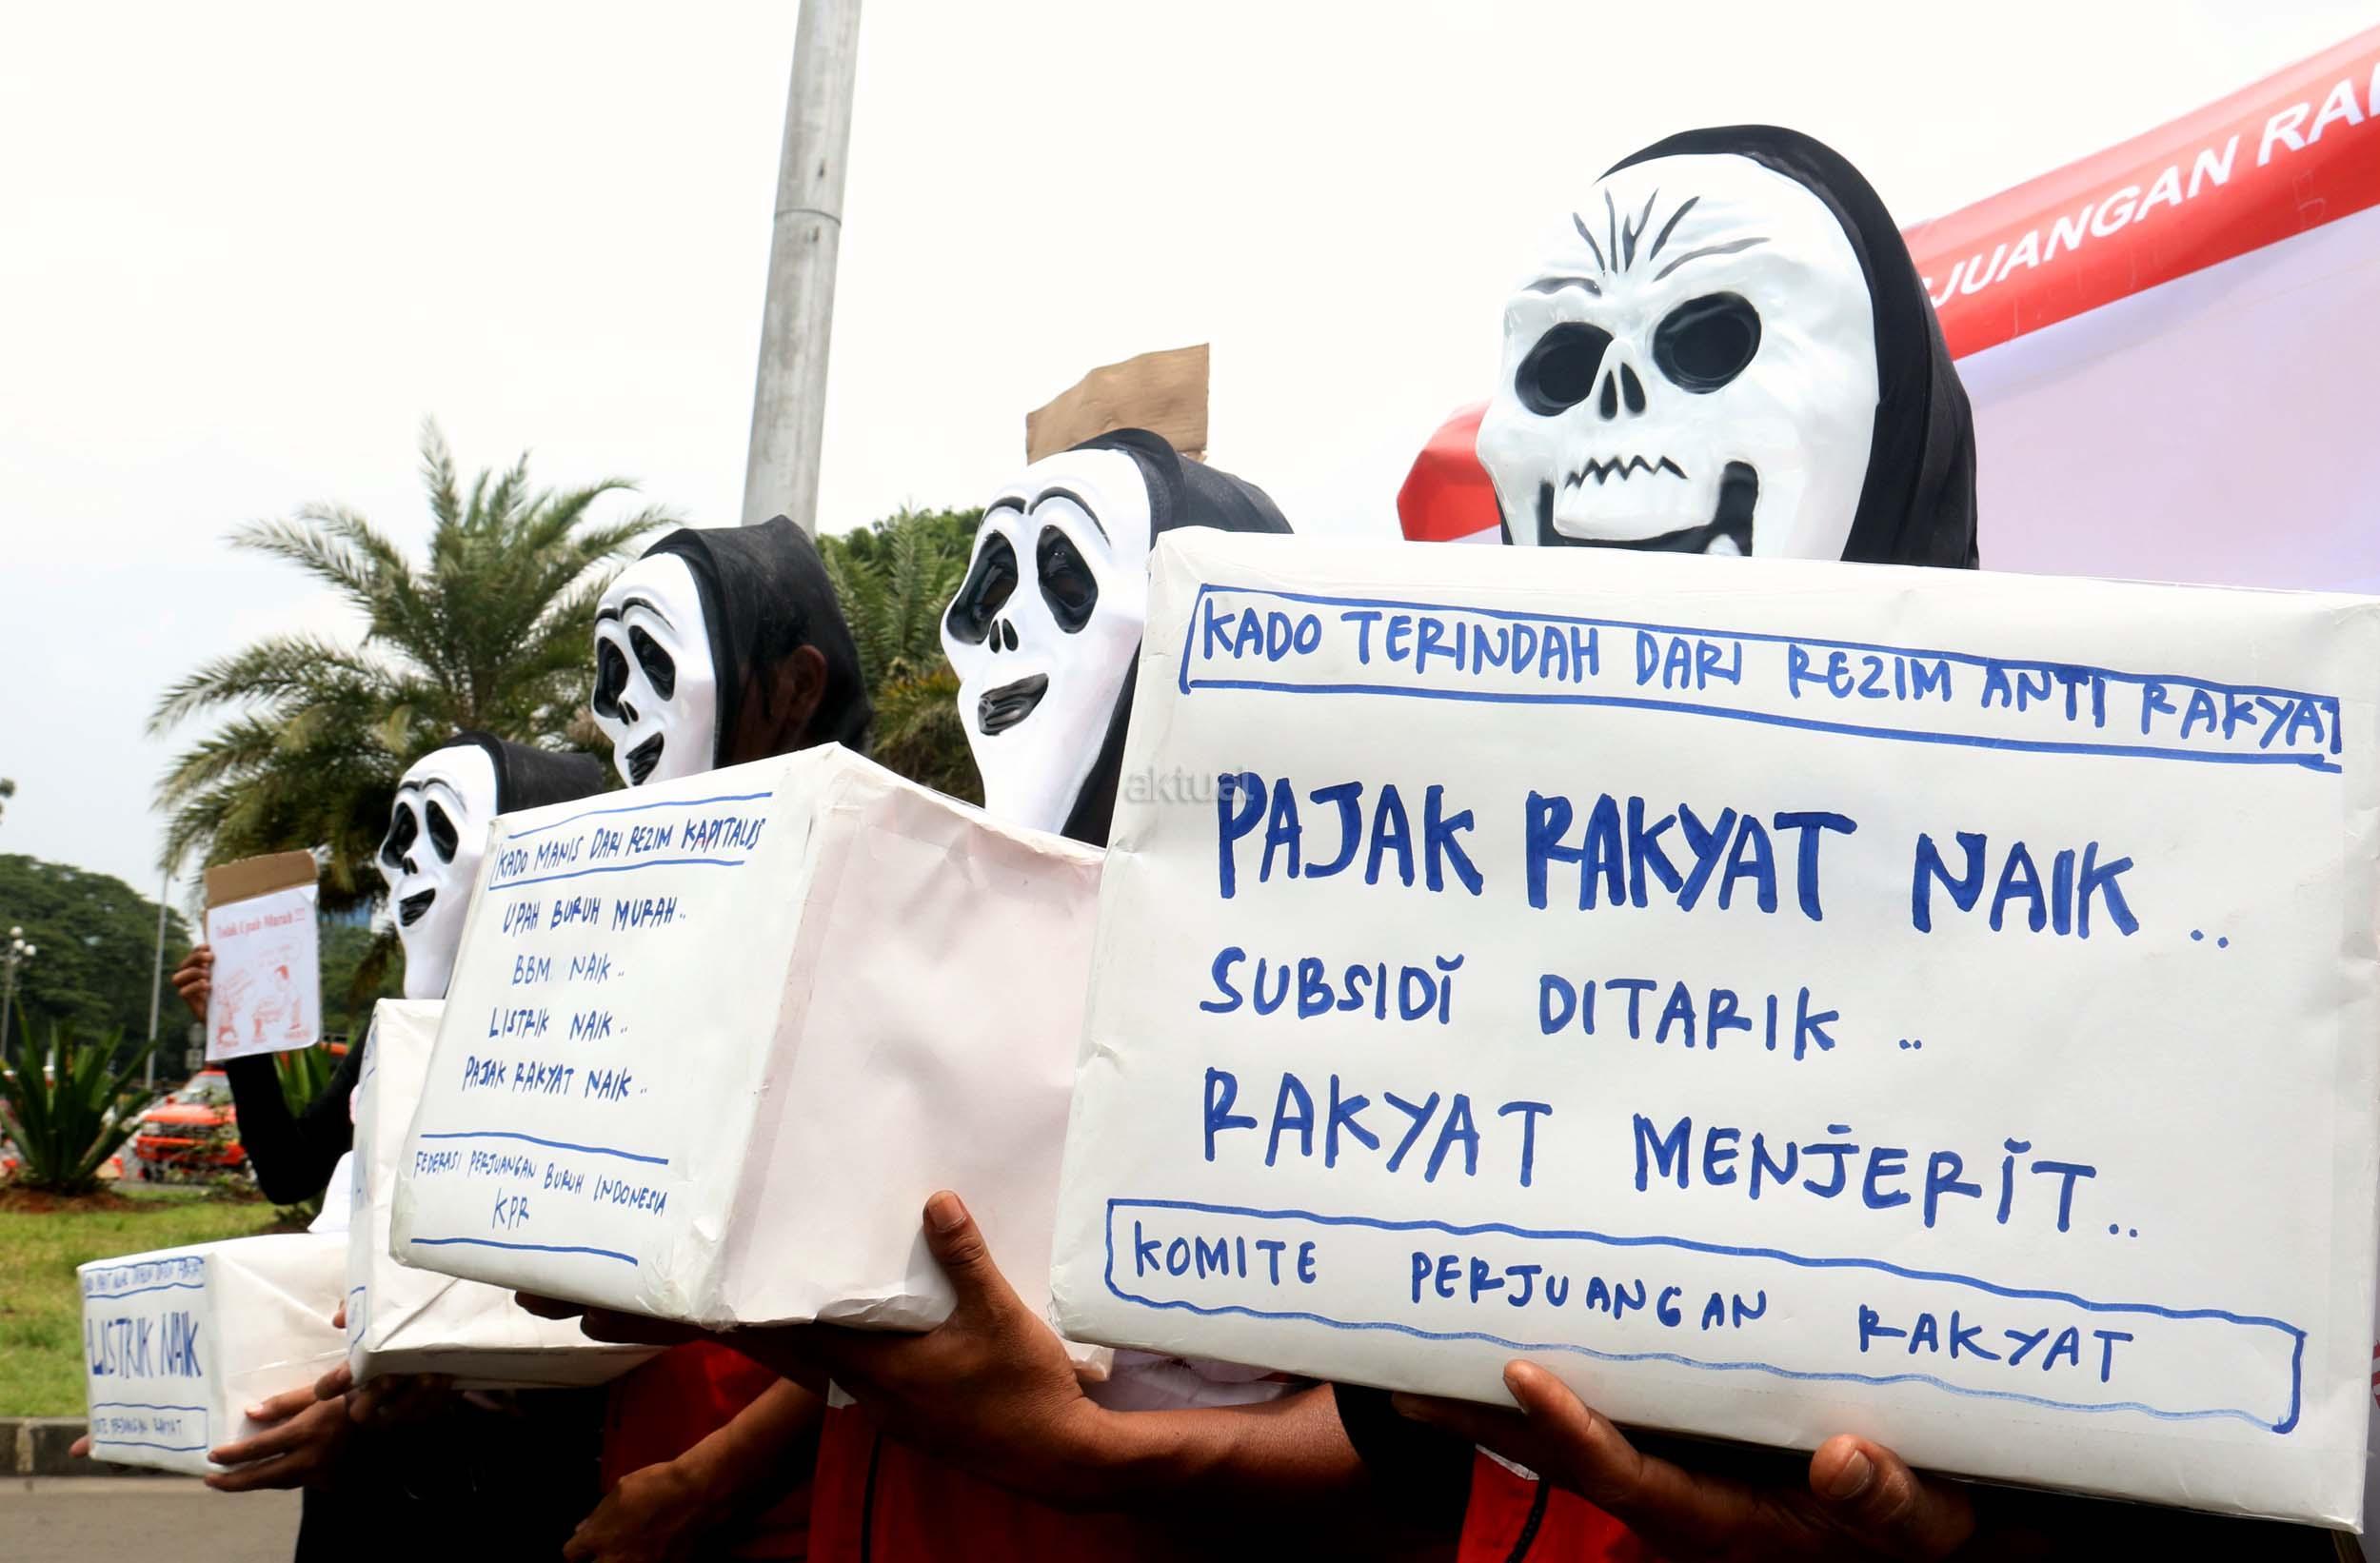 JUANGAN RA
KADO TERINDAH DARI REZIM ANTI RAKYAT
PAJAK RAKYAT NAIK ..
SUBSIDI DITARIK ..
RAKYAT MENJERIT..
KOMITE PERJUANGAN RAKYAT
aktual
KADO MANIS DARI REZIM KAPITALIS
UPAH BURUH MURAH..
BBM NAIK..
LISTRIK NAIK..
PAJAK RAKYAT NAIK..
FEDERASI PERJUANGAN BURUH INDONESIA
KPR
Tolak Upah Murah !!!
LISTRIK NAIK
PERJUANGAN RAKYAT